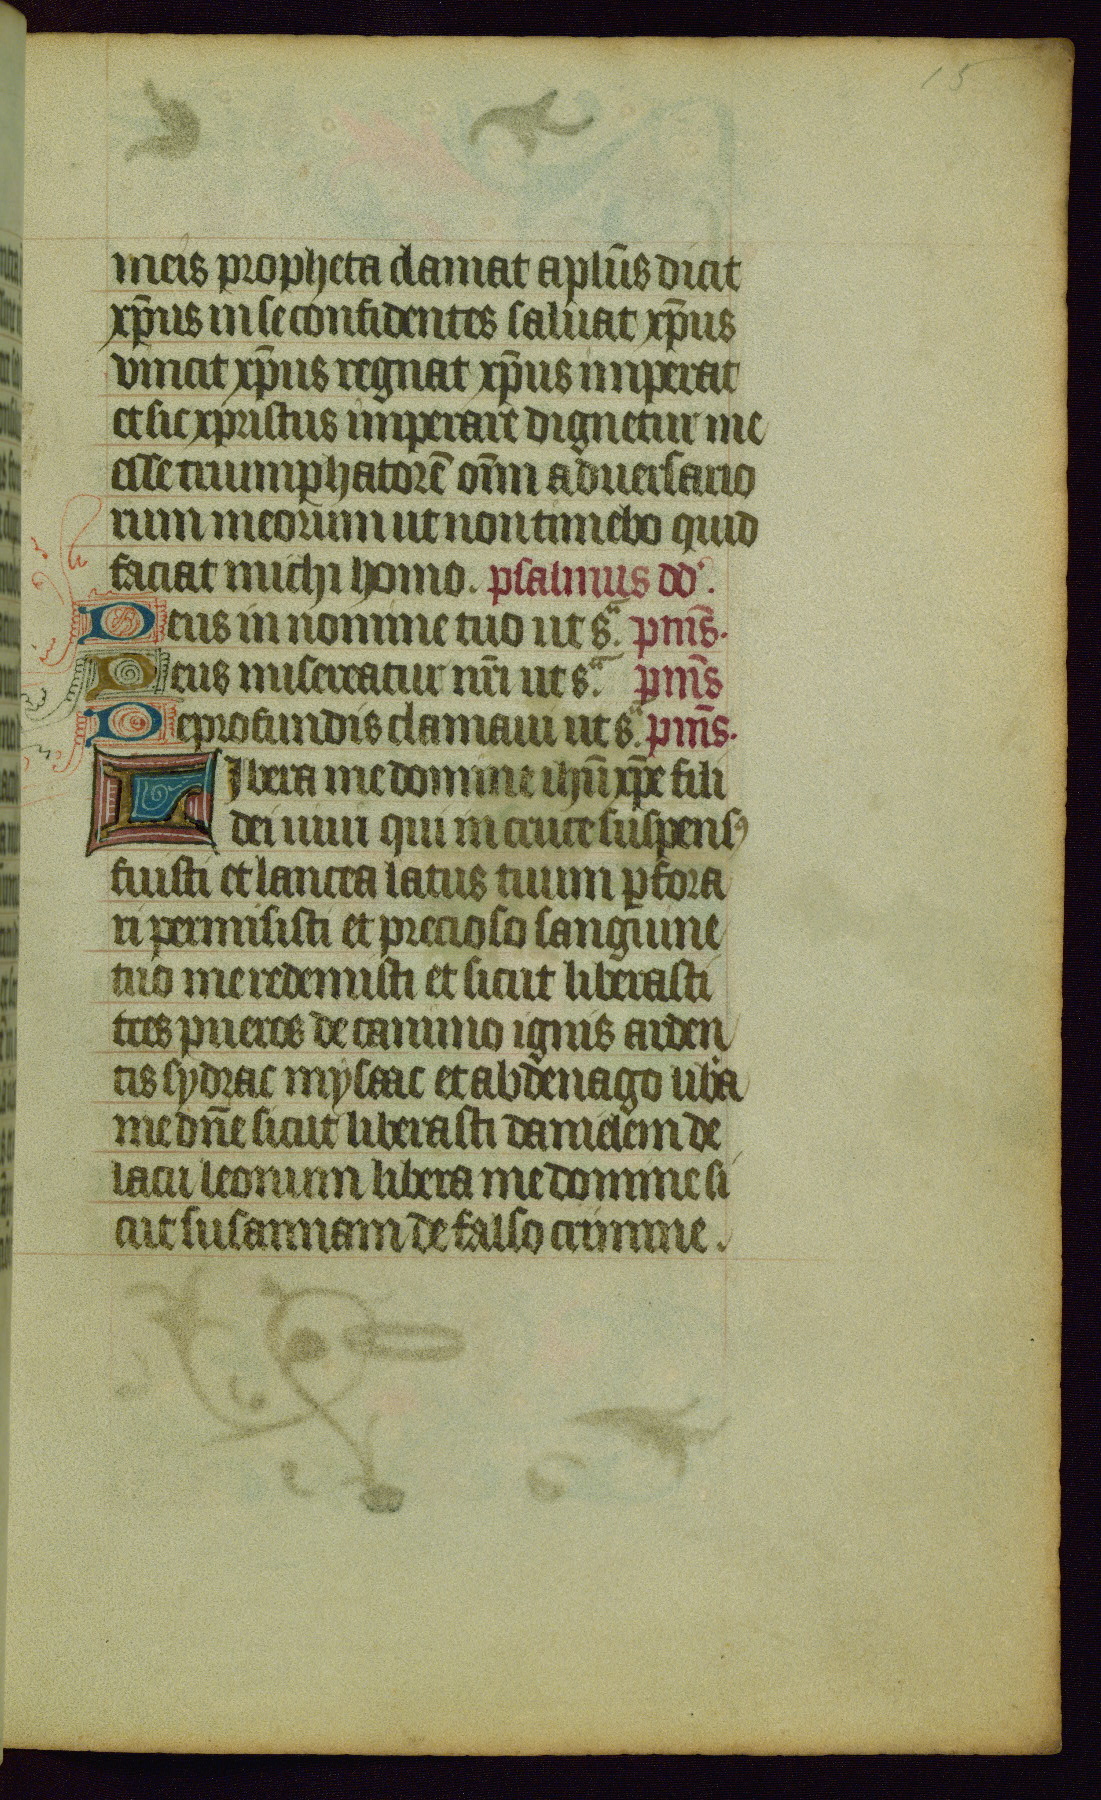 15
meis propheta clamat aplūs dicit
xp̄us in se confidentes saluat xp̄us
vincit xp̄us regnat xp̄us imperat
et sic xpristus imperare dignetur me
esse triumphatorē om̄i aduersario
rum meorum ut non timebo quid
faciat michi homo. psalmus dd.
Deus in nomine tuo ut sᵃ. pm̄s.
Deus misereatur nr̄i ut sᵃ. pm̄s
De profundis clamaui ut sᵃ. pm̄s.
Libera me domine ihū xp̄e fili
dei uiui qui in cruce suspensꝰ
fuisti et lancea latus tuum ꝑfora
ri permisisti et precioso sanguine
tuo me redemisti et sicut liberasti
tres pueros de camino ignis arden
tis sydrac mysaac et abdenago liba
me dn̄e sicut liberasti danielem de
lacu leonum libera me domine si
cut susannam de falso crimine.